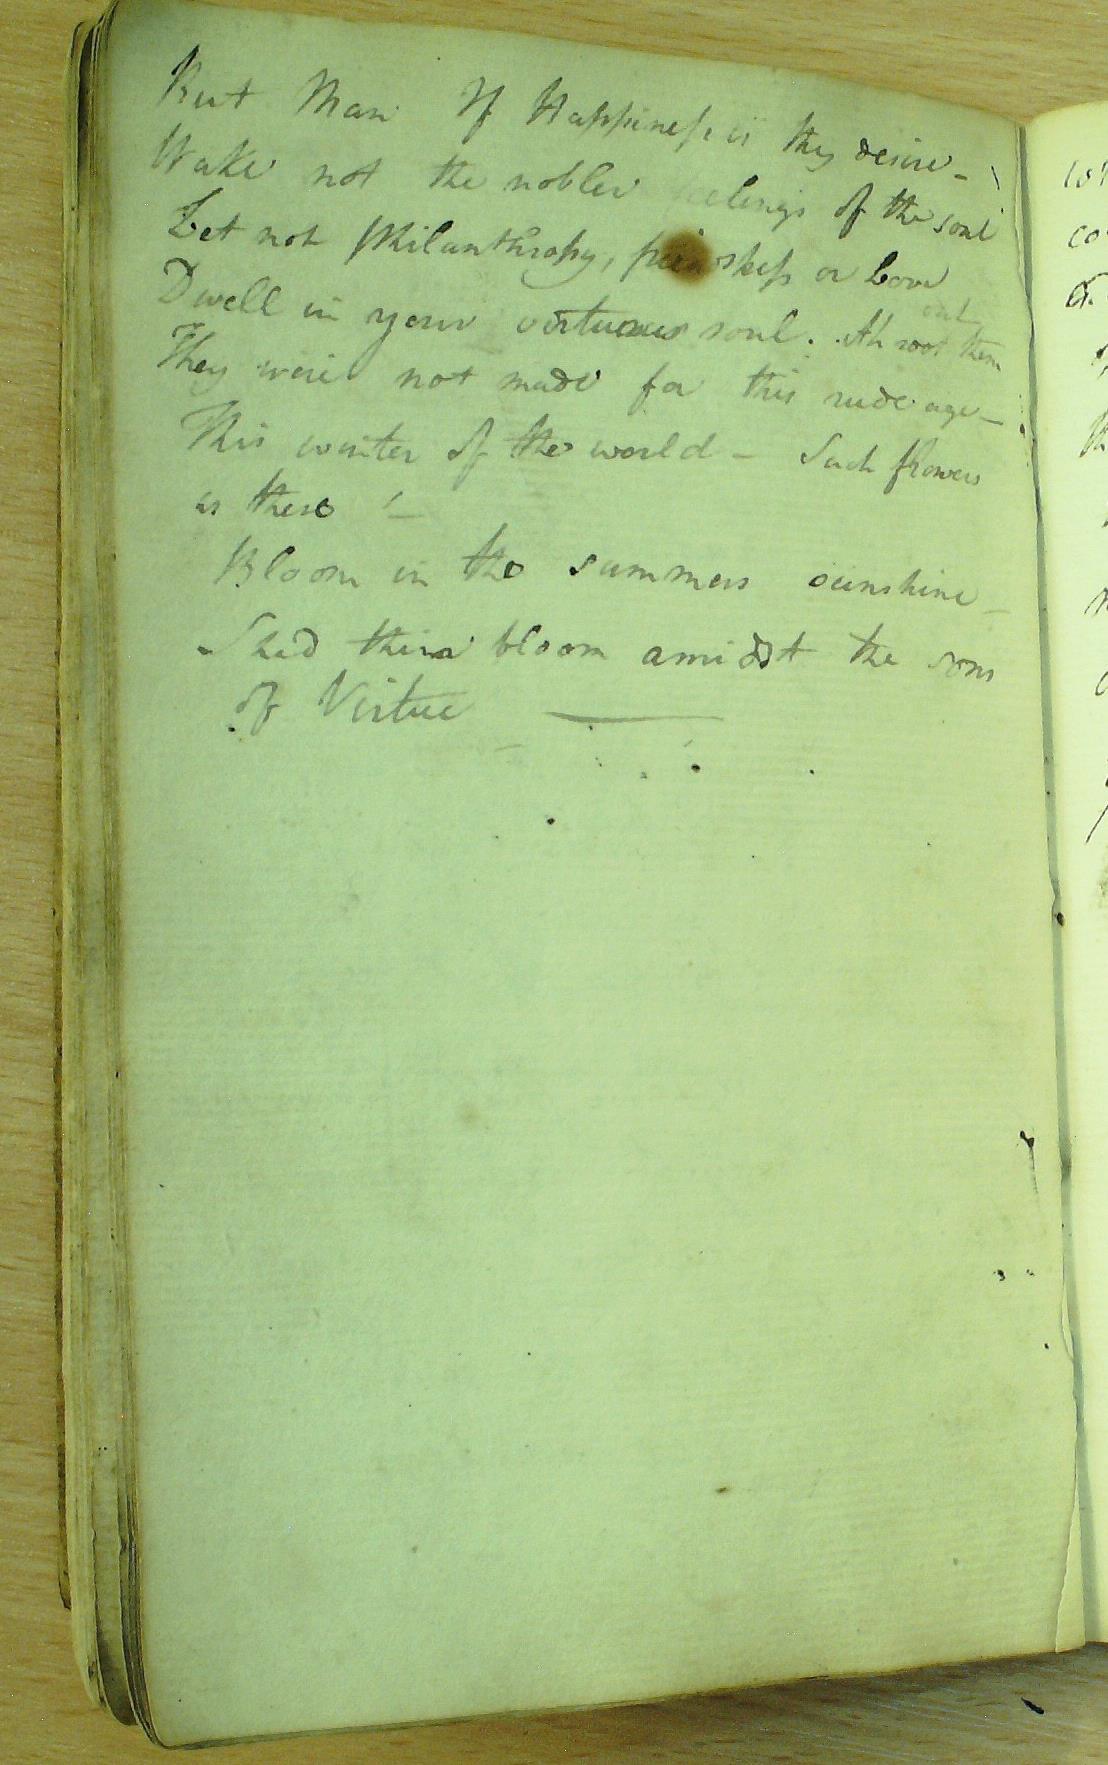 But Man If Happiness is thy desire -
Wake not the nobler feelings of the soul
Let not philanthropy, friendship or Love
Dwell in your virtuous soul. Ah root them out
They were not made for this rude age -
This winter of the world - Such flowers
as these ! -
Bloom in the summers sunshine -
Shed their bloom amidst the sons
of Virtue